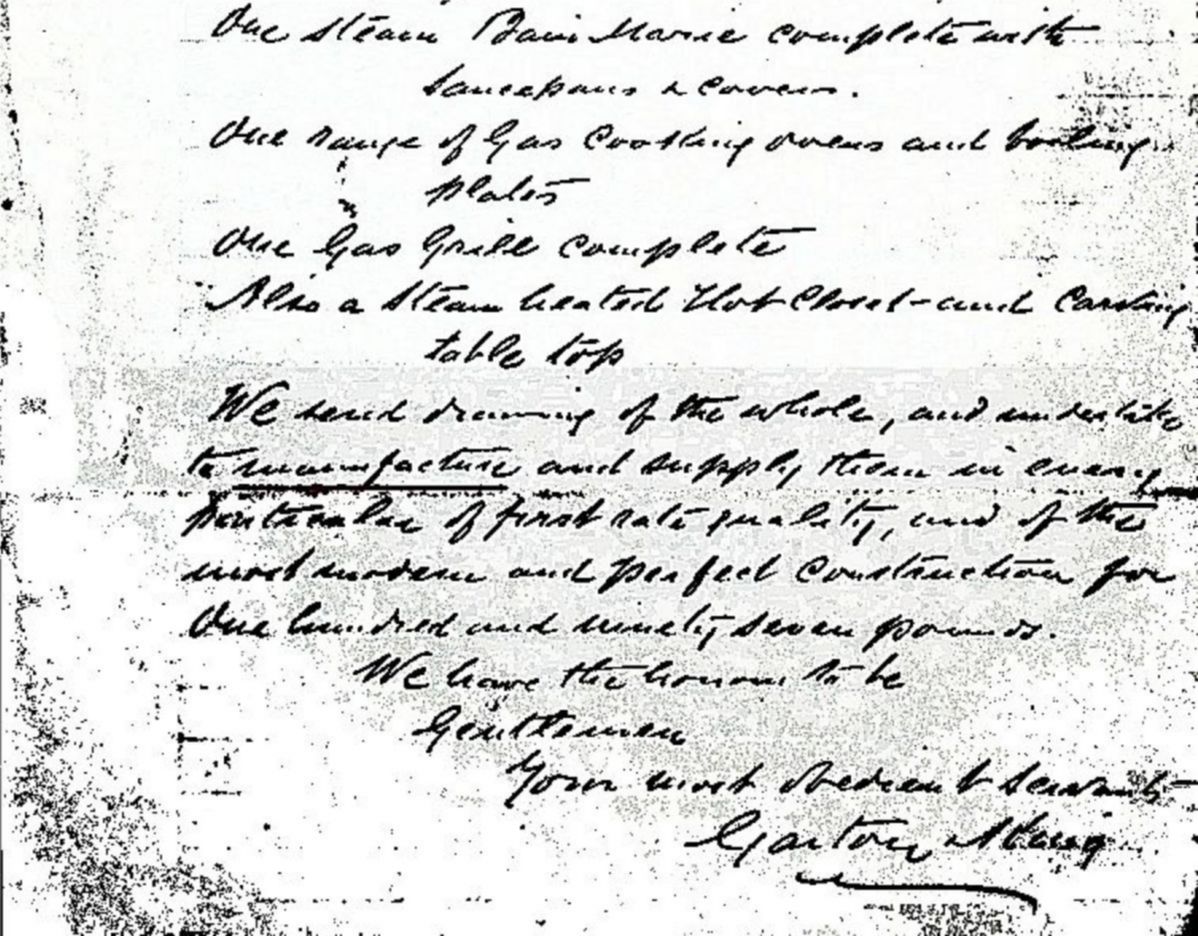 One steam Bain Marie complete with
saucepans & covers.
One range of Gas Cooking ovens and boiling
plates
One Gas Grill complete
Also a Steam heated Hot Closet and Carving
table top
We send drawing of the whole, and undertake
to manufacture and supply them in every
particular of first rate quality, and of the
most modern and perfect construction for
One hundred and ninety seven pounds.
We have the honour to be
Gentlemen
Your most obedient Servants
Garton & King